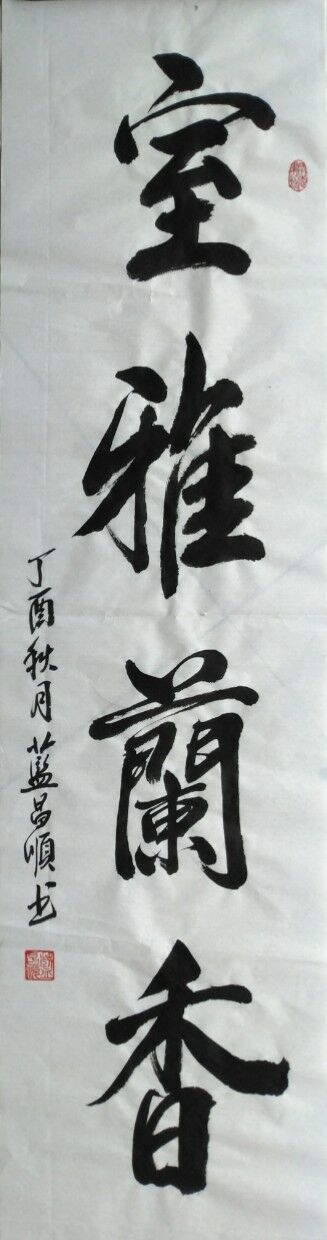 室雅蘭香
丁酉秋月藍昌順书